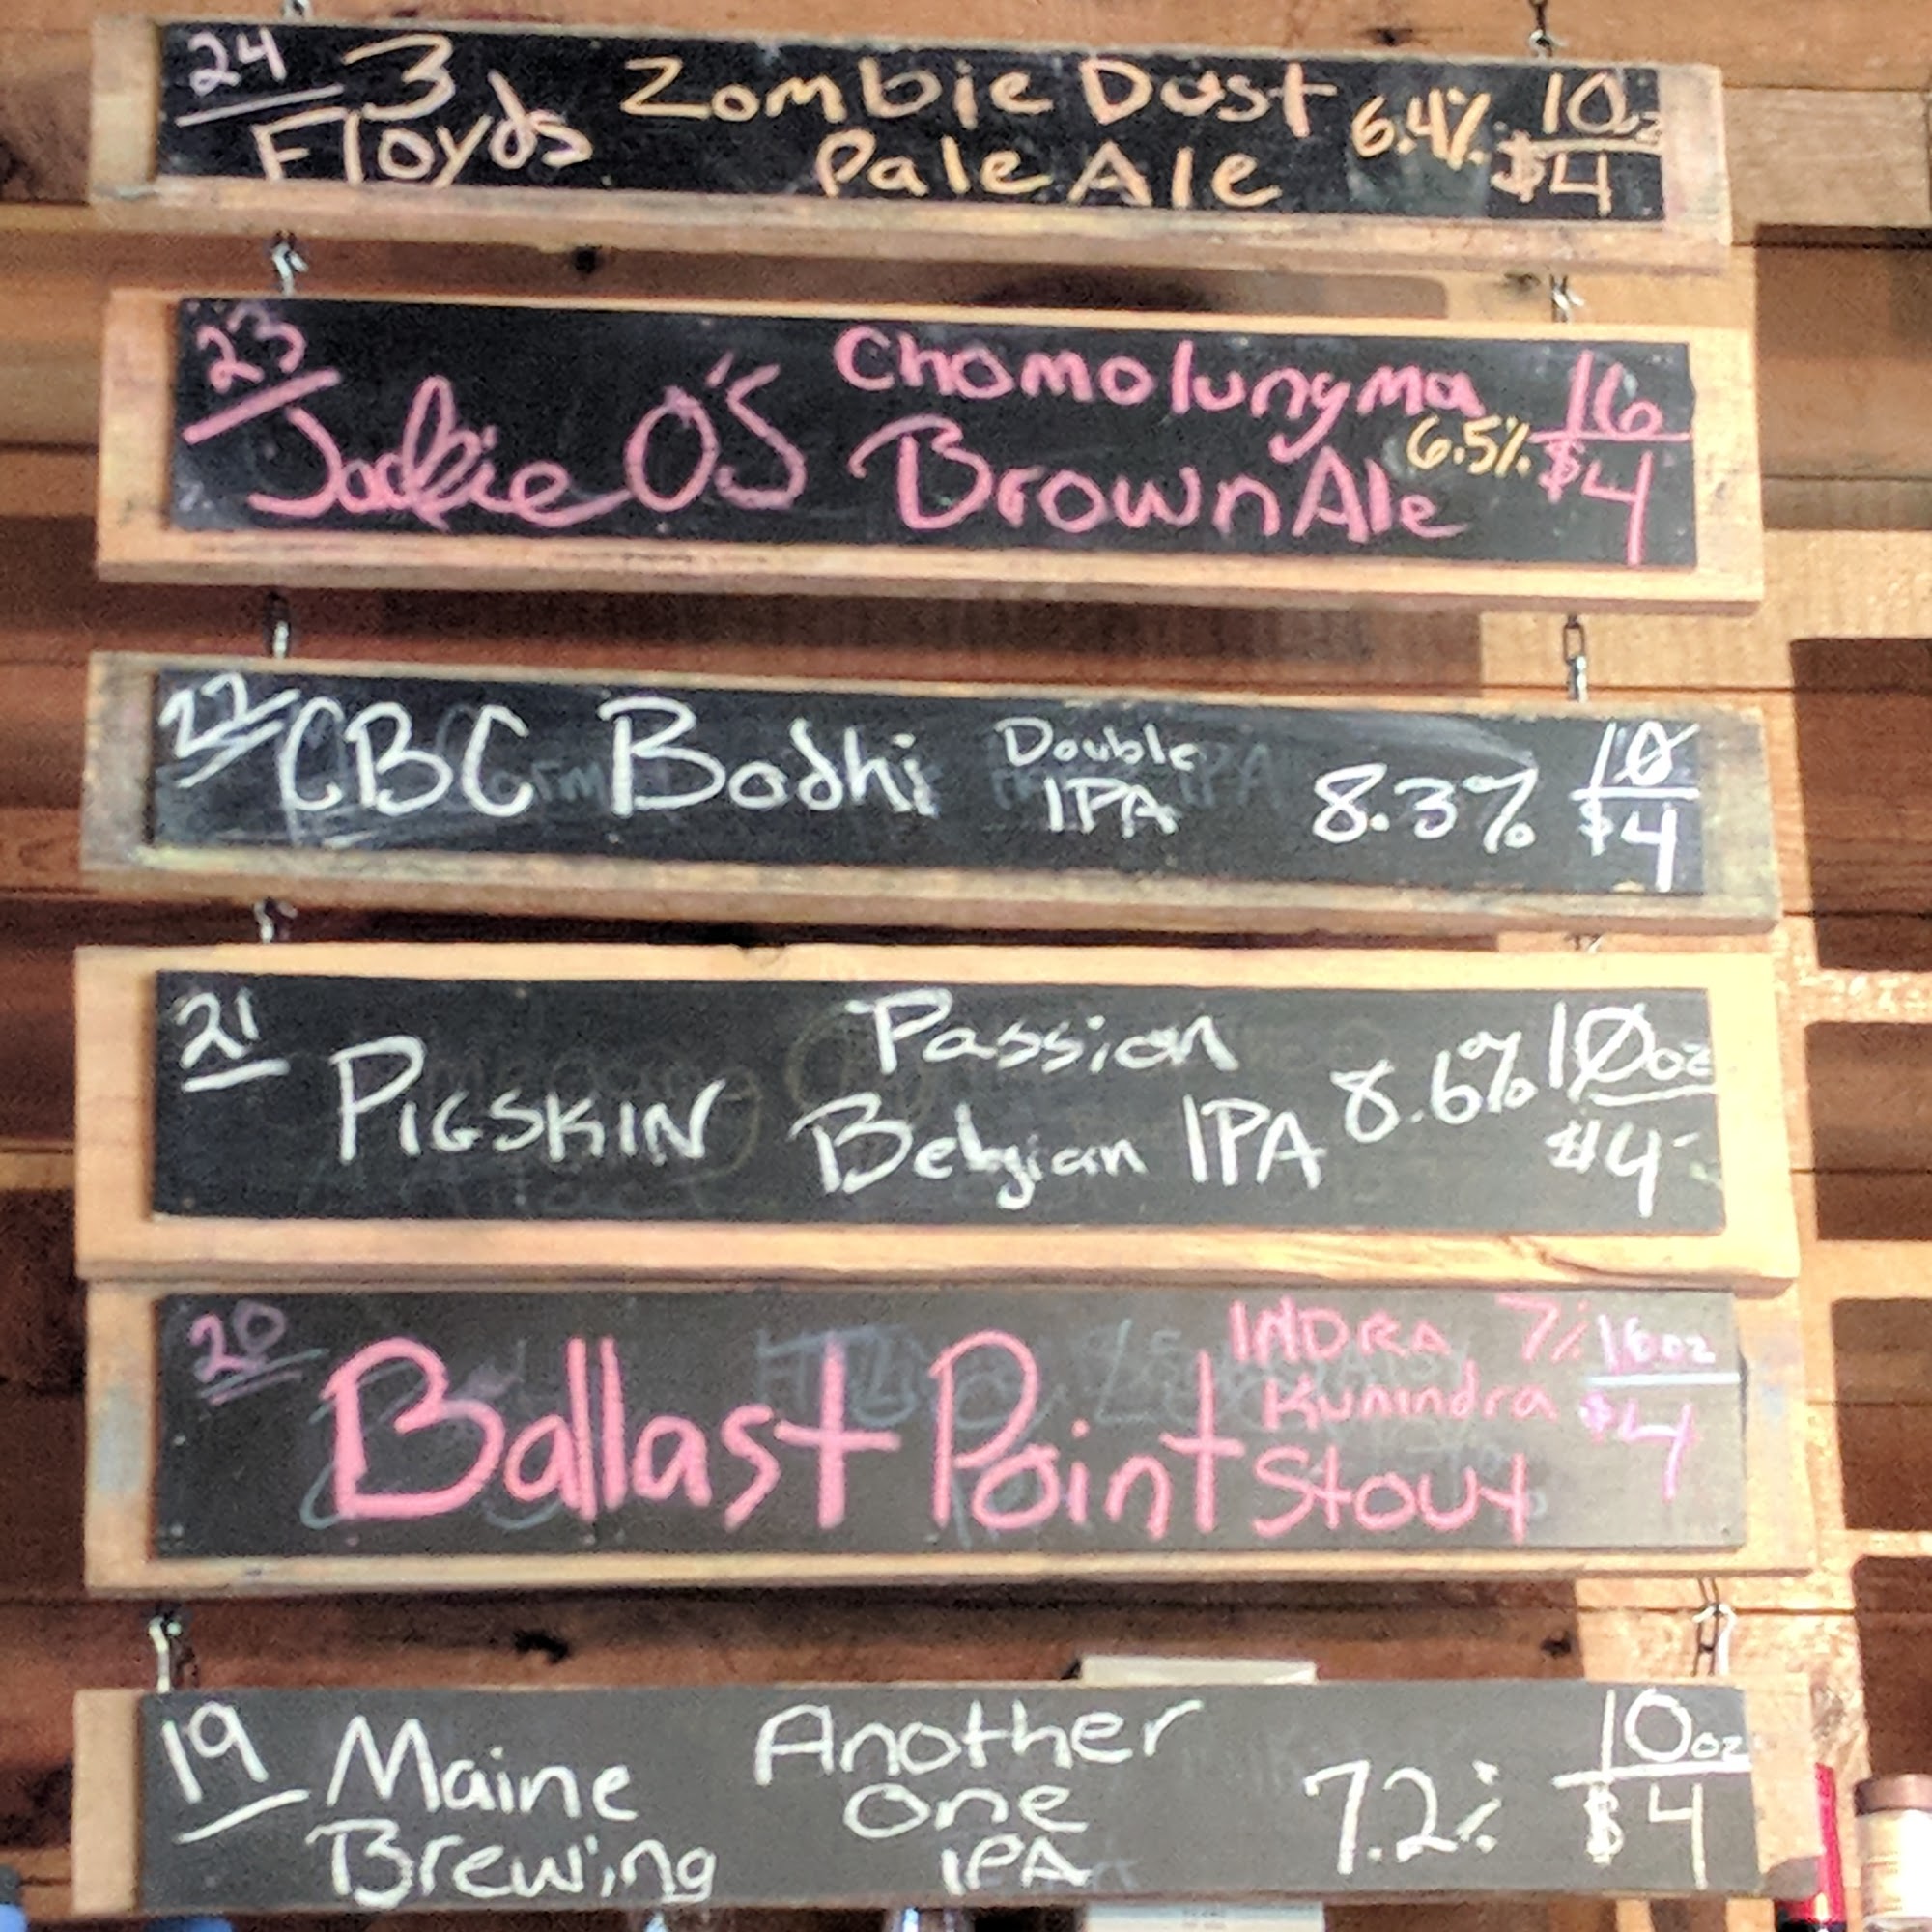 24
3 Zombie Dust 6.4% 10oz
Floyds Pale Ale $4
23
Chomolungma 16
Jackie O'S Brown Ale 6.5% $4
22 CBC Bodhi Double IPA 8.3% 10
$4
21
PIGSKIN Passion 8.6% 10oz
Belgian IPA $4
20
Ballast Point INDRA 7% 16oz
Kunindra $4
Stout
19 Maine Another 7.2% 10oz
Brewing One $4
IPA